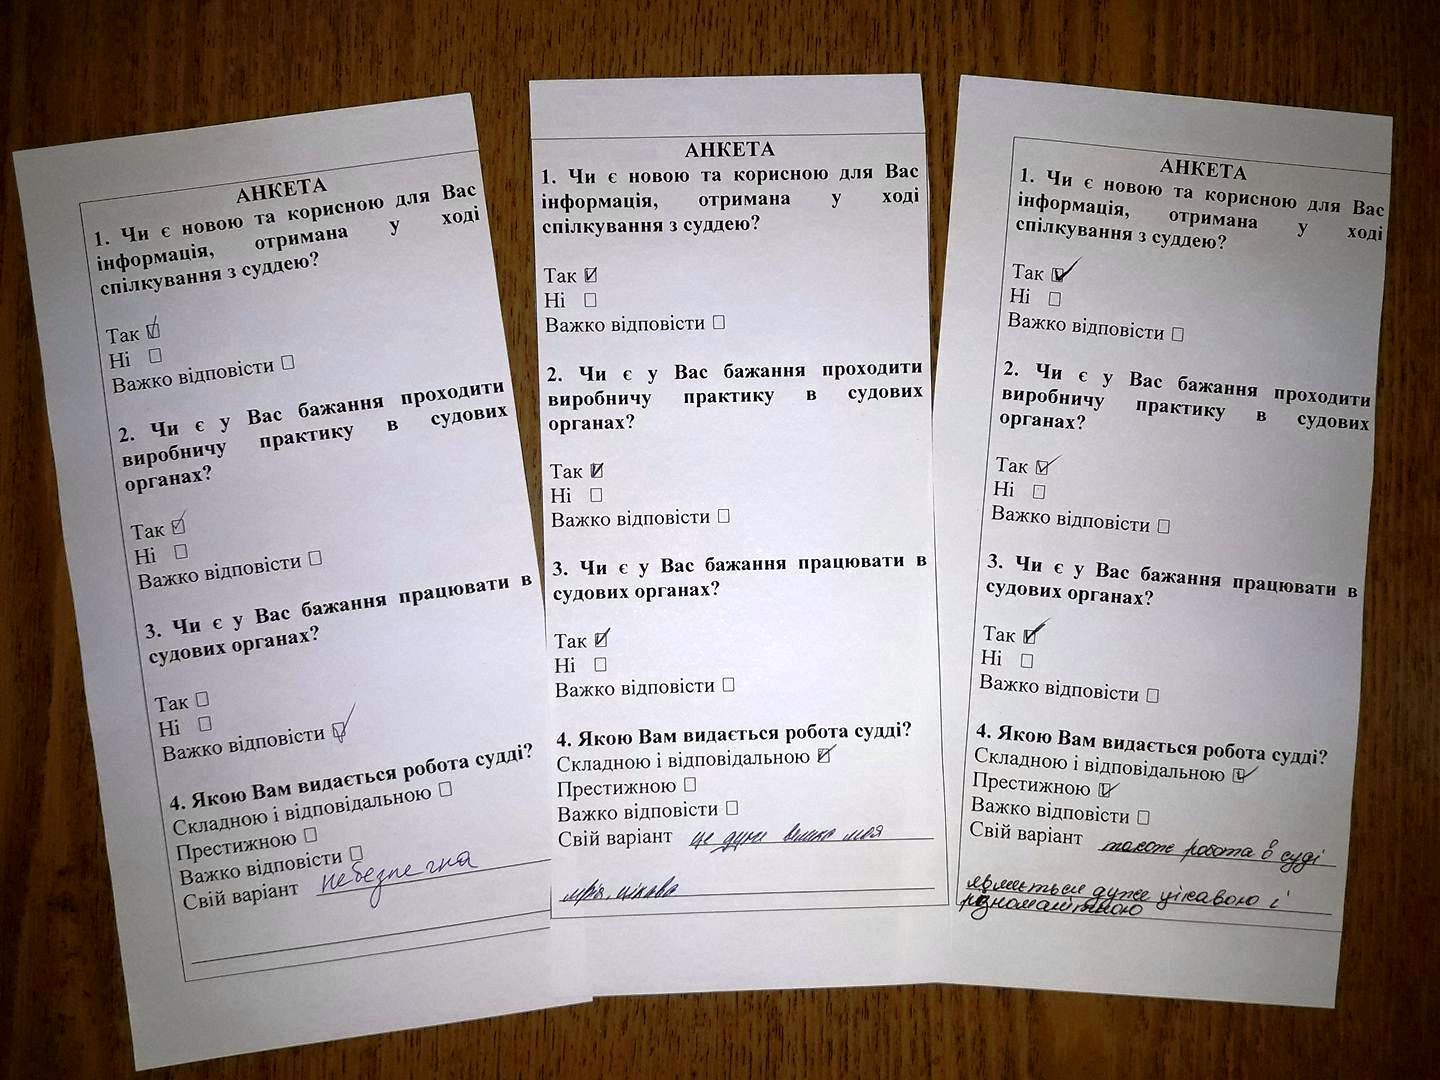 АНКЕТА
1. Чи є новою та корисною для Вас
інформація, отримана у ході
спілкування з суддею?
Так ☑
Ні ☐
Важко відповісти ☐
2. Чи є у Вас бажання проходити
виробничу практику в судових
органах?
Так ☑
Ні ☐
Важко відповісти ☐
3. Чи є у Вас бажання працювати в
судових органах?
Так ☐
Ні ☐
Важко відповісти ☑
4. Якою Вам видається робота судді?
Складною і відповідальною ☐
Престижною ☐
Важко відповісти ☐
Свій варіант небезпечна
АНКЕТА
1. Чи є новою та корисною для Вас
інформація, отримана у ході
спілкування з суддею?
Так ☑
Ні ☐
Важко відповісти ☐
2. Чи є у Вас бажання проходити
виробничу практику в судових
органах?
Так ☑
Ні ☐
Важко відповісти ☐
3. Чи є у Вас бажання працювати в
судових органах?
Так ☑
Ні ☐
Важко відповісти ☐
4. Якою Вам видається робота судді?
Складною і відповідальною ☑
Престижною ☐
Важко відповісти ☐
Свій варіант це дуже велика моя
мрія, цікава
АНКЕТА
1. Чи є новою та корисною для Вас
інформація, отримана у ході
спілкування з суддею?
Так ☑
Ні ☐
Важко відповісти ☐
2. Чи є у Вас бажання проходити
виробничу практику в судових
органах?
Так ☑
Ні ☐
Важко відповісти ☐
3. Чи є у Вас бажання працювати в
судових органах?
Так ☑
Ні ☐
Важко відповісти ☐
4. Якою Вам видається робота судді?
Складною і відповідальною ☑
Престижною ☑
Важко відповісти ☐
Свій варіант також робота в суді
являється дуже цікавою і
різноманітною